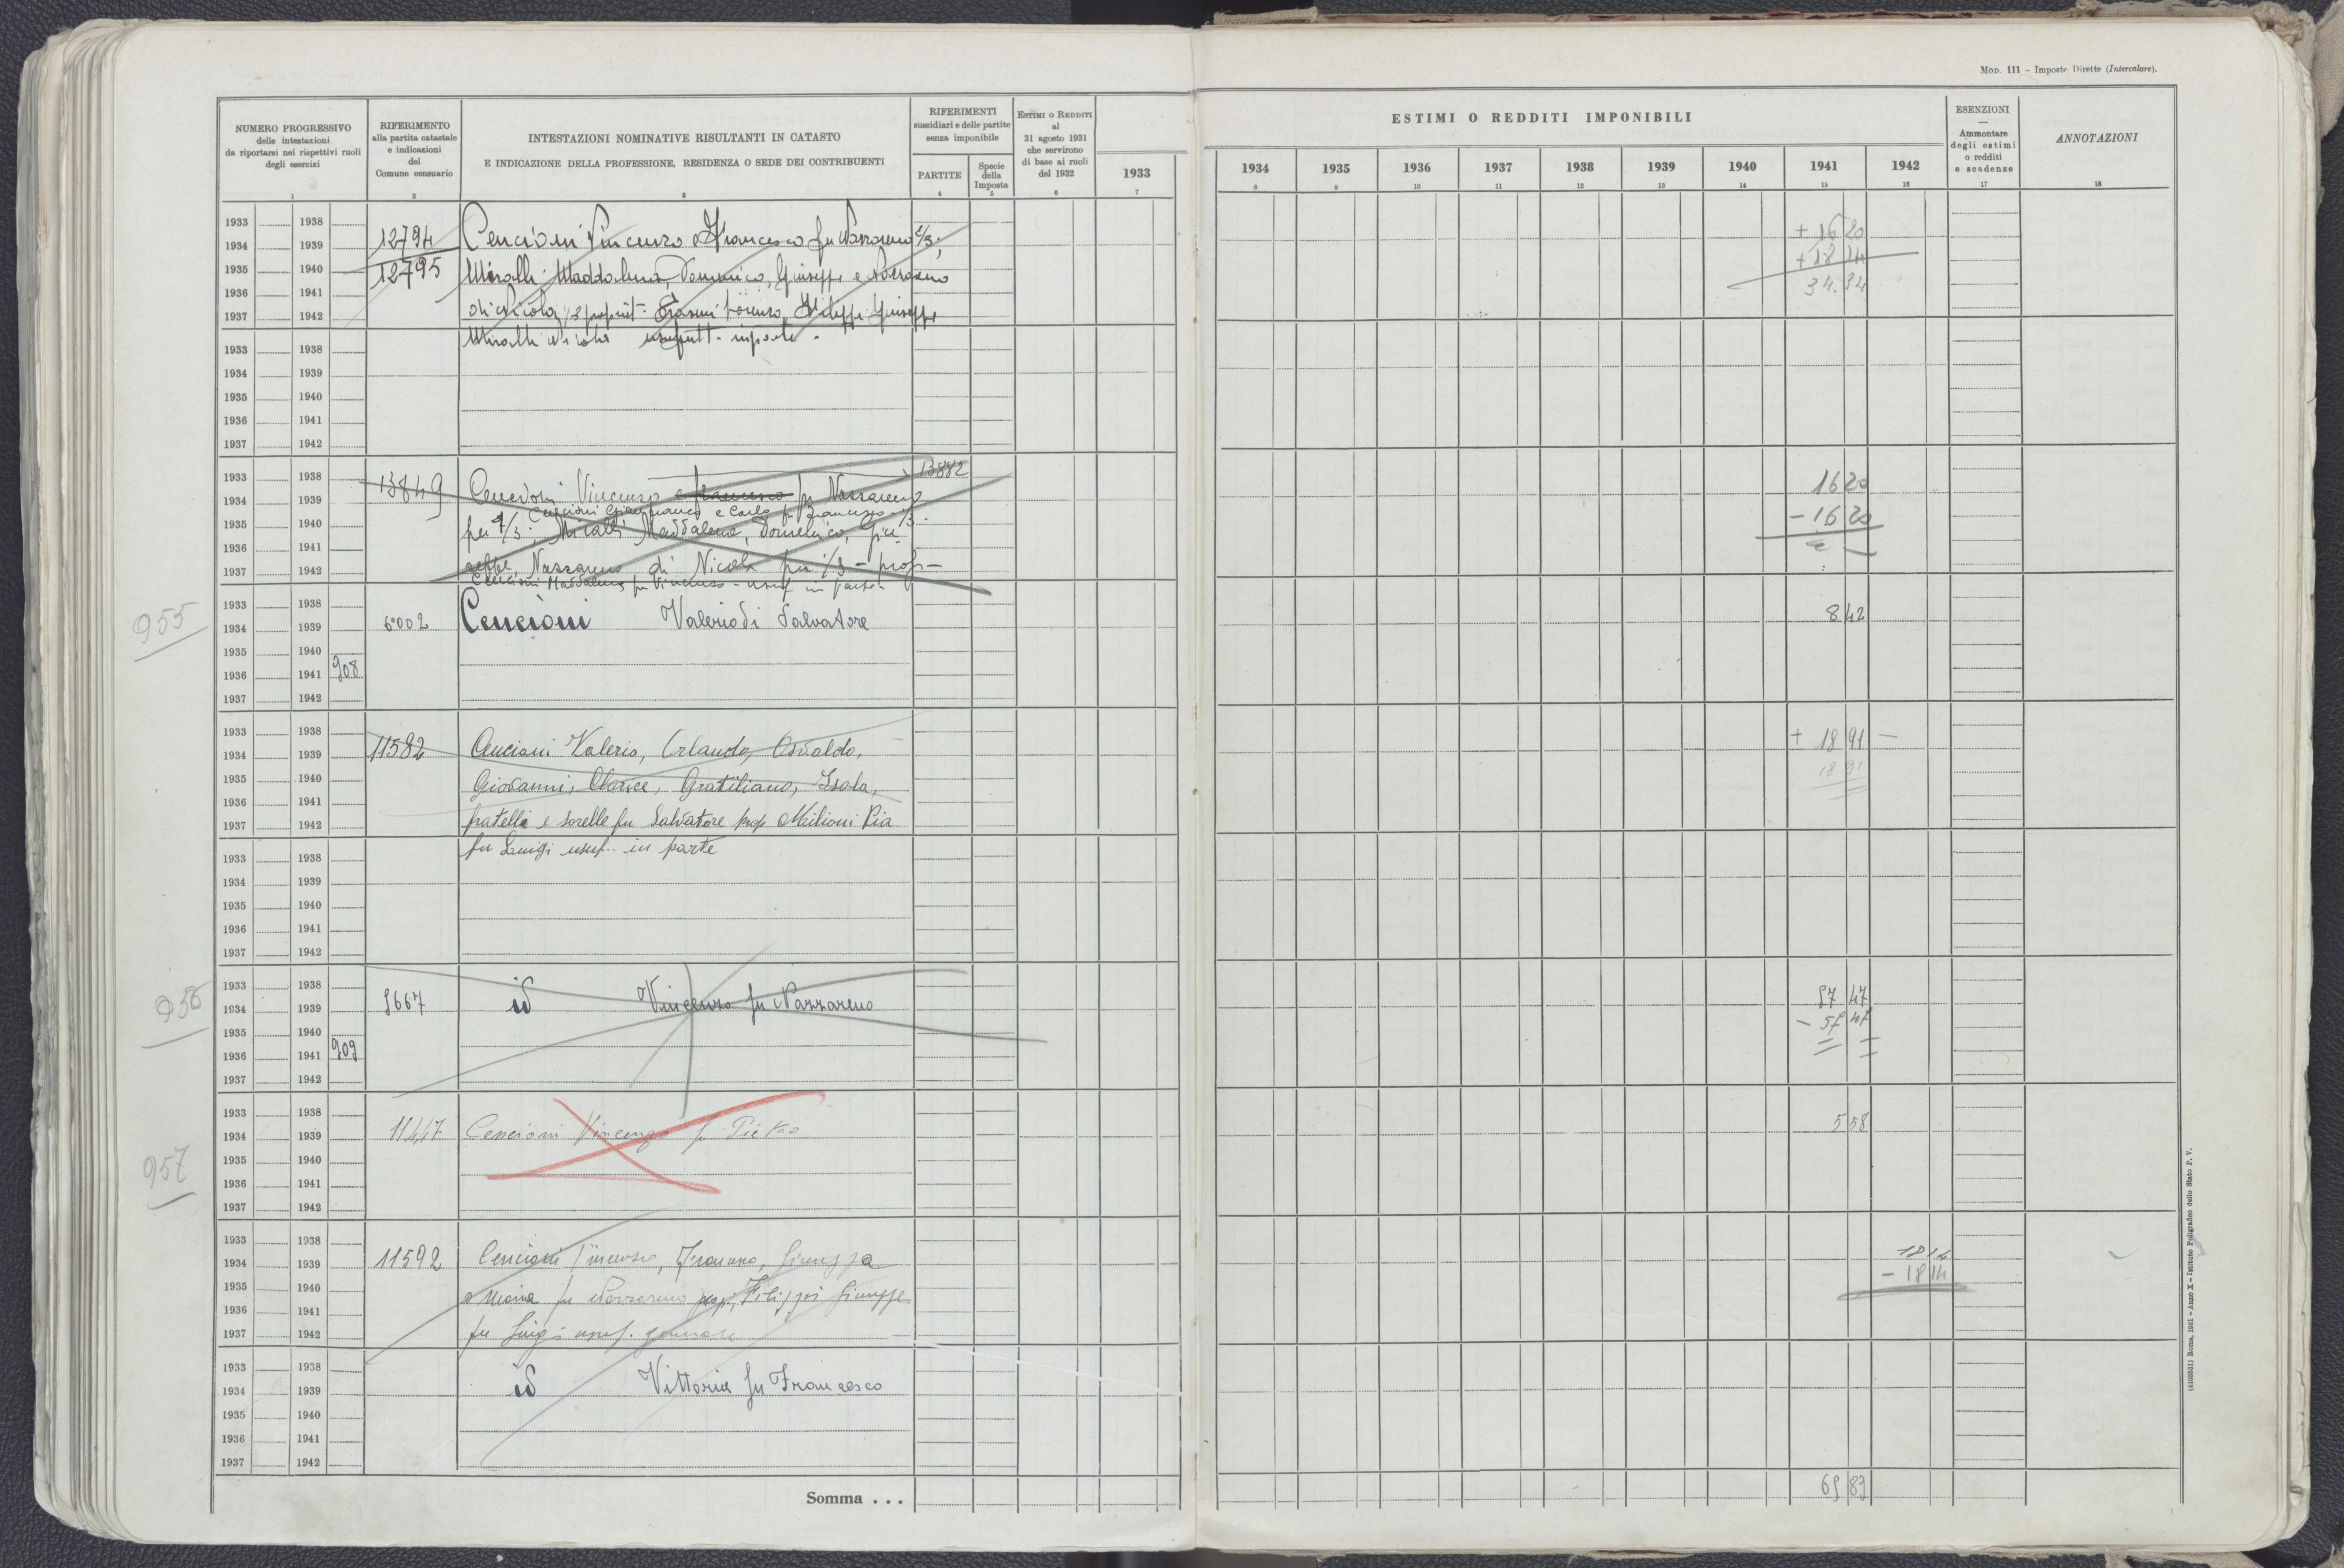 MOD. 111 - Imposte Dirette (Intercalare).
NUMERO PROGRESSIVO
delle intestazioni
da riportarsi nei rispettivi ruoli
degli esercizi
1
RIFERIMENTO
alla partita catastale
e indicazioni
del
Comune censuario
2
INTESTAZIONI NOMINATIVE RISULTANTI IN CATASTO
E INDICAZIONE DELLA PROFESSIONE, RESIDENZA O SEDE DEI CONTRIBUENTI
3
RIFERIMENTI
sussidiari e delle partite
senza imponibile
PARTITE
4
Specie
della
Imposta
5
ESTIMI O REDDITI
al
31 agosto 1931
che servirono
di base ai ruoli
del 1932
6
1933
7
ESTIMI O REDDITI IMPONIBILI
1934 1935 1936 1937 1938 1939 1940 1941 1942
8 9 10 11 12 13 14 15 16
ESENZIONI
—
Ammontare
degli estimi
o redditi
e scadenze
17
ANNOTAZIONI
18
1933 1938
1934 1939 12794 Cencioni Vincenzo e Francesco fu Nazzareno 2/3; + 16 20
1935 1940 12795 Miralli Maddalena, Domenico, Giuseppe e Nazzareno + 18 14
1936 1941 34.34
1937 1942 di Nicola 1/3 propriet. Erasmi Lorenzo, Filippi Giuseppe
Miralli Nicola usufrutt.
1933 1938
1934 1939
1935 1940
1936 1941
1937 1942
1933 1938 13882
1934 1939 13849 Cencioni Vincenzo e Francesco fu Nazzareno 16 20
Cencioni Gianfranco e Carlo fu Francesco
1935 1940 per 1/3; Miralli Maddalena, Domenico, Giu- - 16 20
1936 1941
1937 1942 seppe, Nazzareno di Nicola per 1/3 - prop -
Cencioni Maddalena fu Vincenzo - usuf in parte
955
1933 1938
1934 1939 6002 Cencioni Valerio di Salvatore 8 42
1935 1940
1936 1941 908
1937 1942
1933 1938
1934 1939 11582 Cencioni Valerio, Orlando, Osvaldo, + 18 91 —
1935 1940 Giovanni, Clarice, Gratiliano, Isola, 18 91
1936 1941
1937 1942 fratelli e sorelle fu Salvatore prop Milioni Pia
fu Luigi usuf. in parte
1933 1938
1934 1939
1935 1940
1936 1941
1937 1942
956
1933 1938
1934 1939 5667 id Vincenzo fu Nazzareno 57 47
1935 1940 - 57 47
1936 1941 909
1937 1942
957
1933 1938
1934 1939 11447 Cencioni Vincenzo fu Pietro 5 58
1935 1940
1936 1941
1937 1942
1933 1938
1934 1939 11592 Cencioni Vincenzo, Francesco, Giuseppa 18 14
1935 1940 e Maria fu Nazzareno prop, Filippi Giuseppe - 18 14
1936 1941
1937 1942 fu Luigi usuf. generale
1933 1938
1934 1939 id Vittoria fu Francesco
1935 1940
1936 1941
1937 1942
Somma . . . 69 89
(4103551) Roma, 1931 - Anno X - Istituto Poligrafico dello Stato P. V.